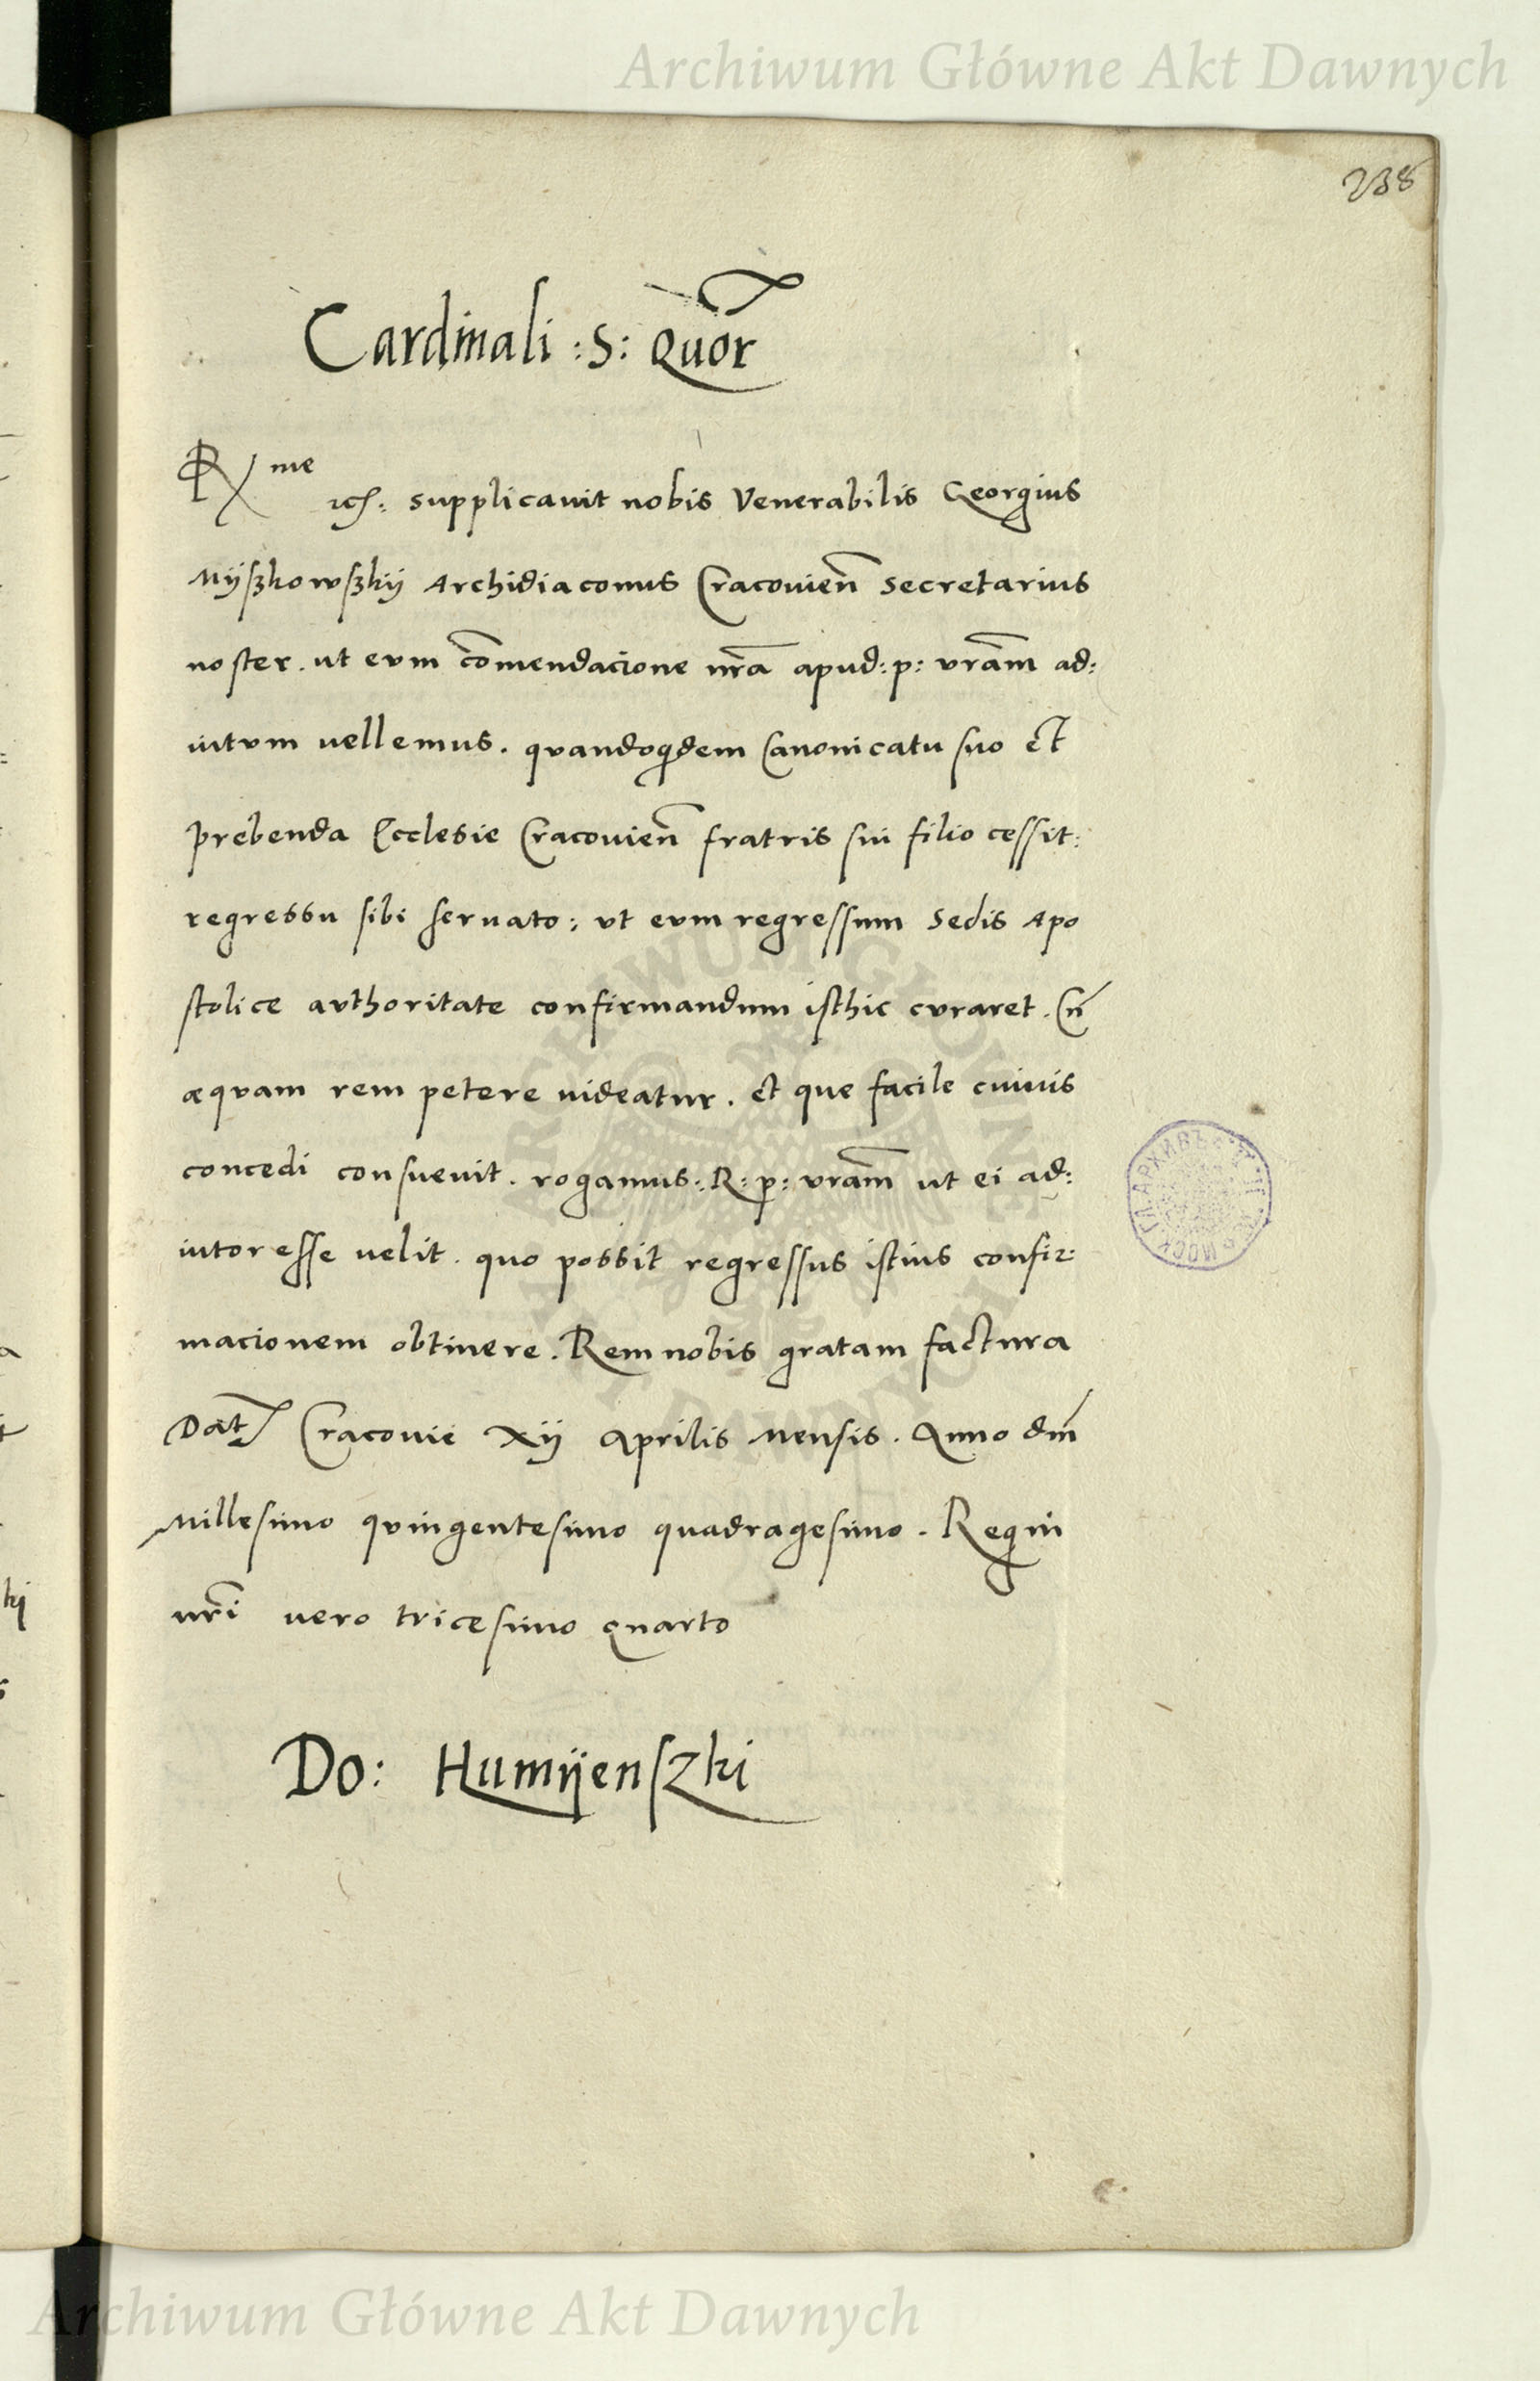 Archiwum Główne Akt Dawnych
238
Cardinali :S: Quor̃
Rx me etc̃: supplicavit nobis Venerabilis Georgius
Mijszkowszkij Archidiaconus Cracovien̄ Secretarius
noster. ut eum cōmendacione nr̄a apud: p: vrām ad:
iutum vellemus. quandoqdem Canonicatu suo et
prebenda Ecclesie Cracovien̄ fratris sui filio cessit:
regressu sibi servato: ut eum regressum Sedis Apo
stolice authoritate confirmandum isthic curaret. Cū
æquam rem petere videatur. et que facile cuivis
concedi consuevit. rogamus: R: p: vrām ut ei ad:
iutor esse velit. quo possit regressus istius confir:
macionem obtinere. Rem nobis gratam factura
Dat̄ Cracovie xij Aprilis Mensis. Anno dm̄
Millesimo quingentesimo quadragesimo. Regni
nr̄i vero tricesimo quarto
Do: Humijenszki
Archiwum Główne Akt Dawnych